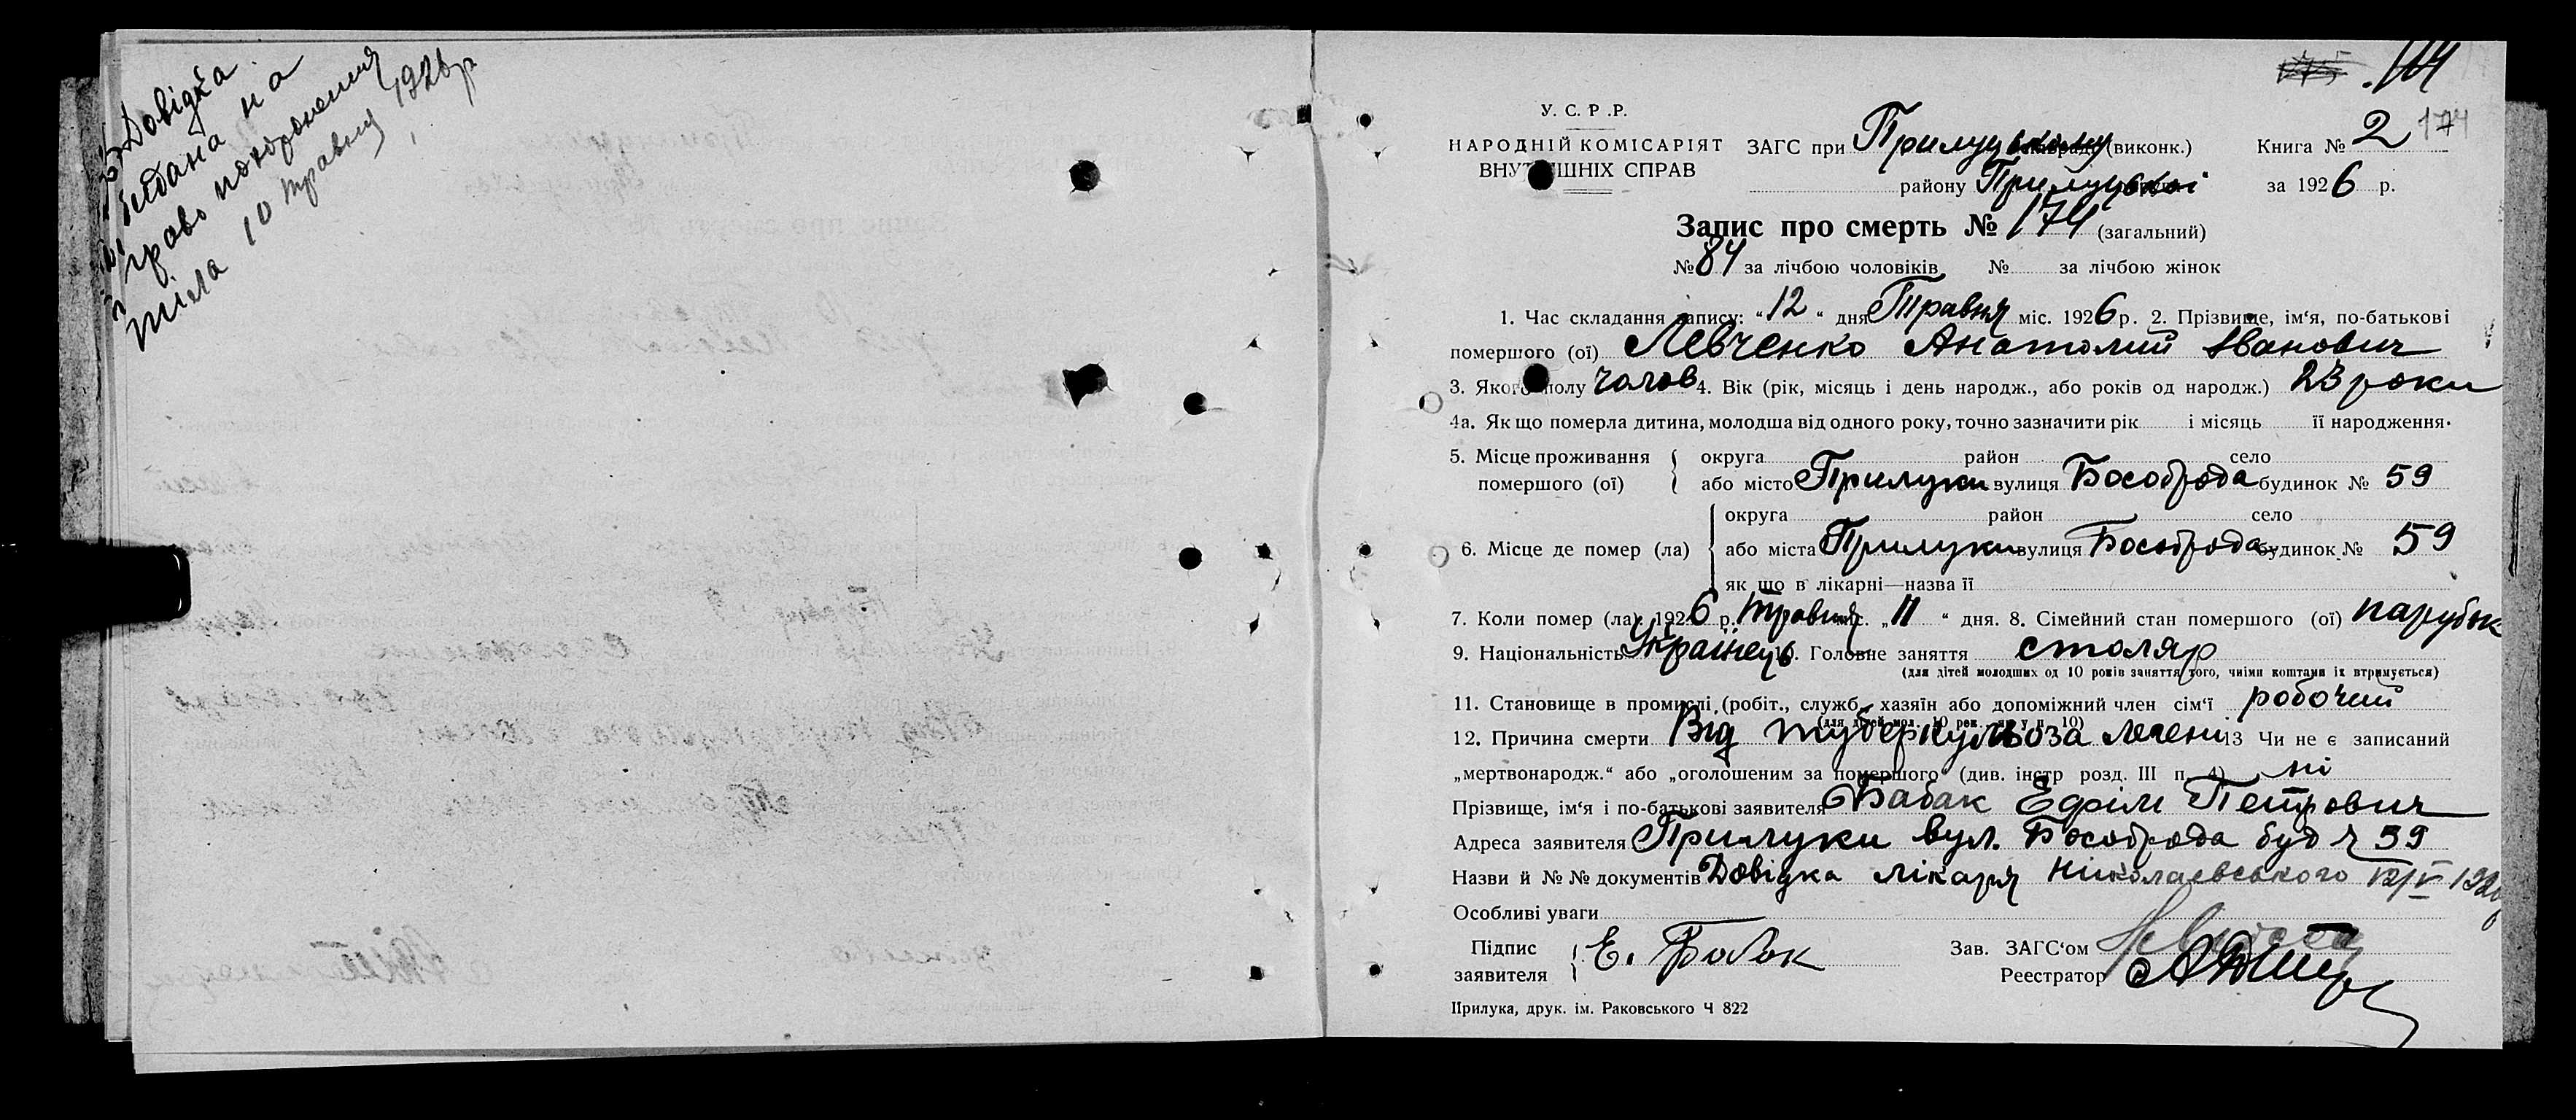 Довідка
видана на
право похоронення
тіла 10 травня 1926 р
174
174
У. С. Р .Р.
НАРОДНІЙ КОМІСАРІЯТ
ВНУТ ІШНІХ СПРАВ
ЗАГС при Прилуцькому (виконк.)
району Прилуцької
Книга № 2
за 1926 р.
Запис про смерть № 174 (загальний)
№ 84 за лічбою чоловіків № за лічбою жінок
1. Час складання запису: “12“ дня Травня міс. 1926 р. 2. Прізвище, ім‘я, по-батькові
помершого (ої) Левченко Анатолий Іванович
3. Якого полу чолов 4. Вік (рік, місяць і день народж., або років од народж.) 23 роки
4а. Як що померла дитина, молодша від одного року, точно зазначити рік і місяць її народження.
5. Місце проживання помершого (ої) округа район село
або місто Прилуки вулиця Бособрода будинок № 59
6. Місце де помер (ла) округа район село
або міста Прилуки вулиця Бособрода будинок № 59
як що в лікарні—назва її
7. Коли помер (ла) 1926 р. травня міс. „11“ дня. 8. Сімейний стан помершого (ої) парубок
9. Національність Українець 10. Головне заняття столяр
(для дітей молодших од 10 років заняття того, чиїми коштами їх втримується)
11. Становище в промислі (робіт., служб., хазяїн або допоміжний член сім‘ї робочий
(для дітей мол. 10 рок. як у п. 10)
12. Причина смерти Від туберкульоза легені 13 Чи не є записаний
„мертвонародж.“ або „оголошеним за помершого“ (див. інстр розд. III п. 4) ні
Прізвище, ім‘я і по-батькові заявителя Бабак Ефім Петрович
Адреса заявителя Прилуки вул. Бособрода буд ч 59
Назви й №№ документів Довідка лікаря Николаєвського 12/V 1926
Особливі уваги
Підпис заявителя Е. Бабак
Зав. ЗАГС‘ом
Реестратор
Прилука, друк. ім. Раковського Ч 822